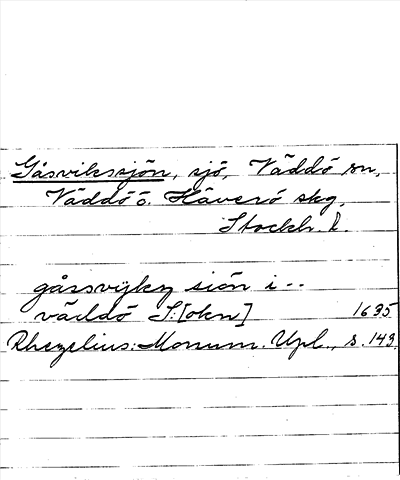 Gåsvikssjön, sjö, Väddö sn,
Väddö o. Häverö skg,
Stockh. l.
gåssvijkz siön i --
väddö S:[okn] 1635
Rhezelius: Monum. Upl., s. 143.